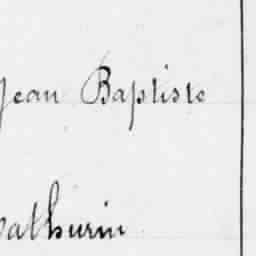 Jean Baptiste
Mathurin